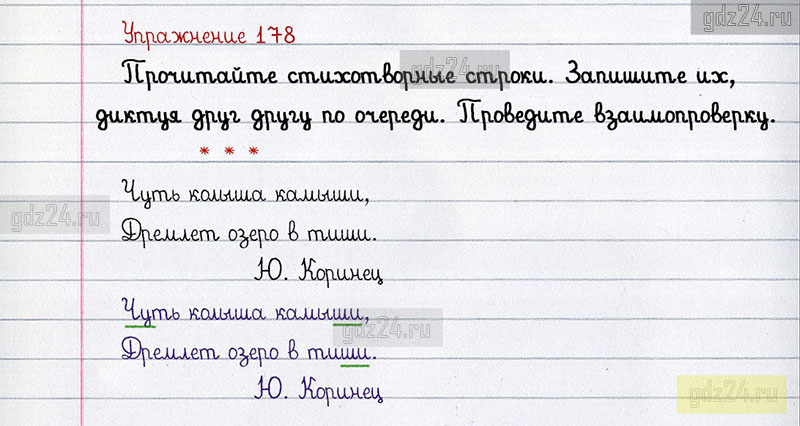 gdz24.ru
Упражнение 178
gdz24.ru
Прочитайте стихотворные строки. Запишите их,
диктуя друг другу по очереди. Проведите взаимопроверку.
* * *
Чуть колыша камыши,
gdz24.ru
Дремлет озеро в тиши.
Ю. Коринец
Чуть колыша камыши,
gdz24.ru
Дремлет озеро в тиши.
Ю. Коринец
gdz24.ru